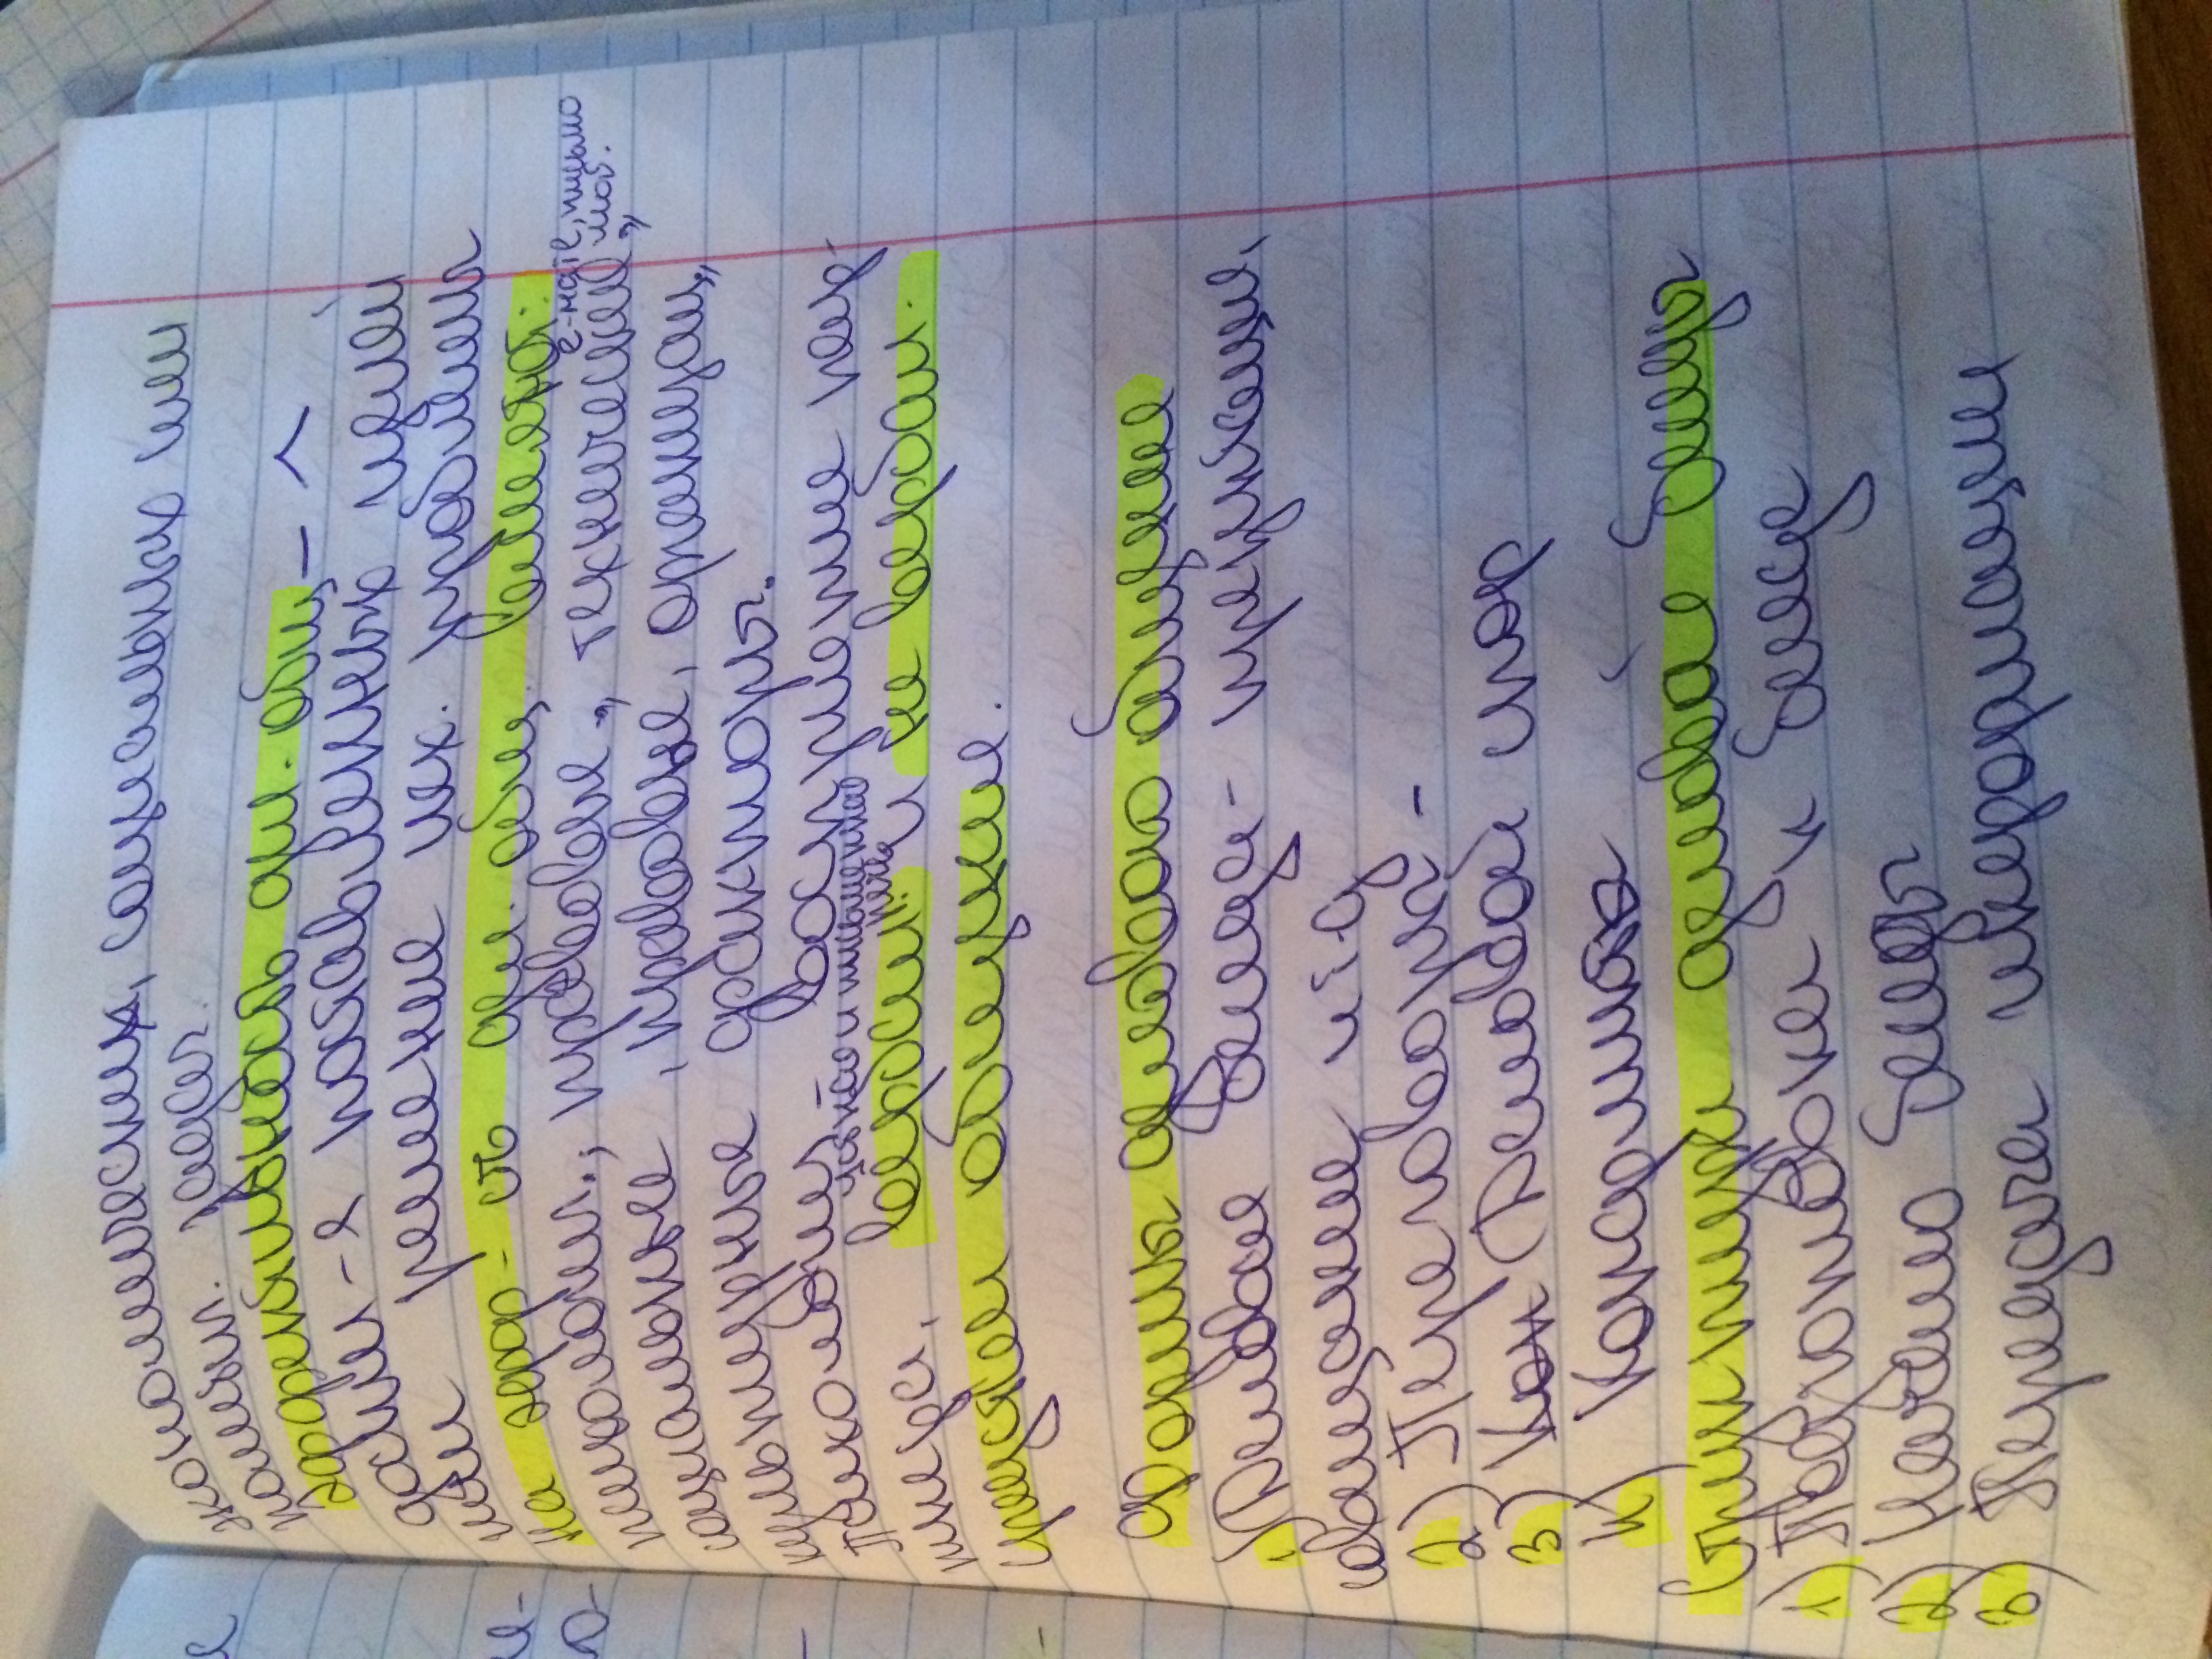 экономических, социальных или
полит. задач.
Эффективность дел. общ – ^
дост-я поставленных целей
или решение исх. проблемы
На эфф-сть дел. общ. влияют:
e-mail, письмо
моб.
психологич., правовые, технические,
социальные, правовые, организац.,
культурные факторы.
Психологич – восприятие пар-
устная и письменная
речь
тнера, вербал. и не вербал.
средства общения.
Формы делового общения
1) Деловая беседа – презентация,
совещание и т.д
2) Переговоры –
3) Кон Деловой спор
4) Конфликты
Структура деловой беседы
1) Подготовка к беседе
2) Начало беседы
3) Передача информации